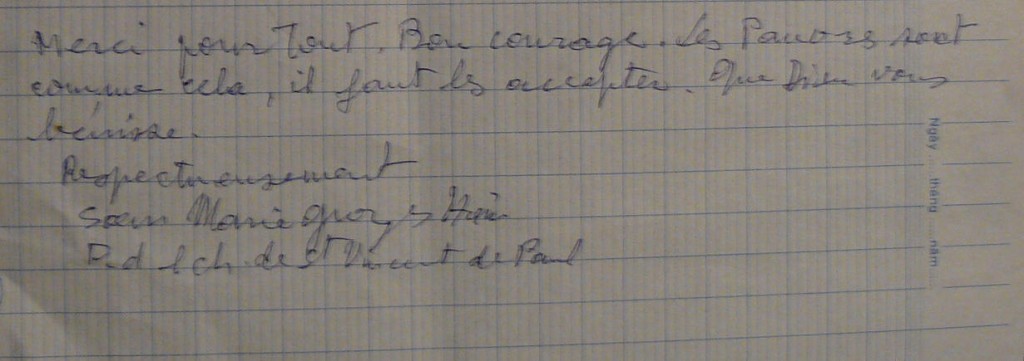 Merci pour Tout. Bon courage. Les Pauvres sont
comme cela, il faut les accepter. Que Dieu vous
bénisse.
Respectueusement
Soeur Marie
de St Vincent de Paul
Ngày ... tháng ... năm ...